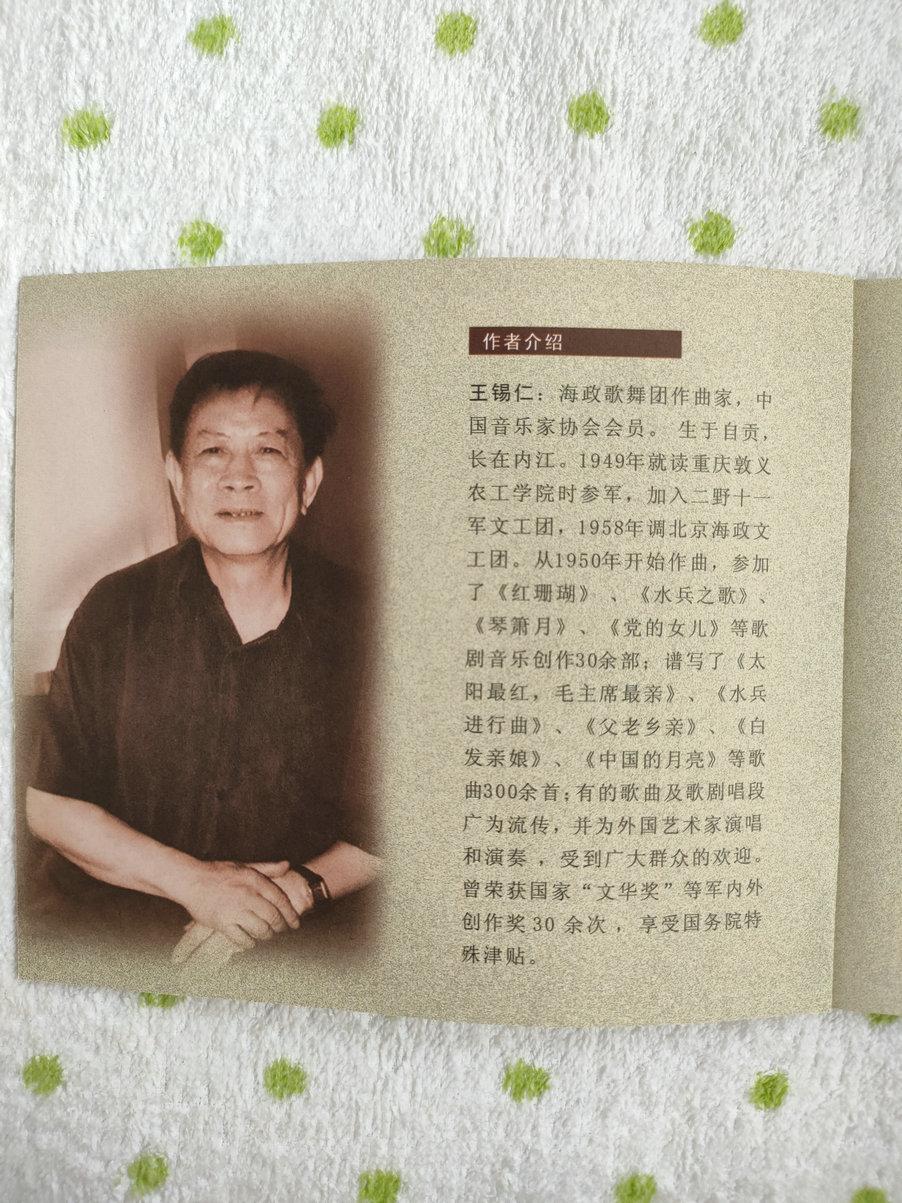 作者介绍
王锡仁：海政歌舞团作曲家，中
国音乐家协会会员。 生于自贡，
长在内江。1949年就读重庆敦义
农工学院时参军，加入二野十一
军文工团，1958年调北京海政文
工团。从1950年开始作曲，参加
了《红珊瑚》、《水兵之歌》、
《琴箫月》、《党的女儿》等歌
剧音乐创作30余部；谱写了《太
阳最红，毛主席最亲》、《水兵
进行曲》、《父老乡亲》、《白
发亲娘》、《中国的月亮》等歌
曲300余首；有的歌曲及歌剧唱段
广为流传，并为外国艺术家演唱
和演奏，受到广大群众的欢迎。
曾荣获国家“文华奖”等军内外
创作奖30 余次，享受国务院特
殊津贴。